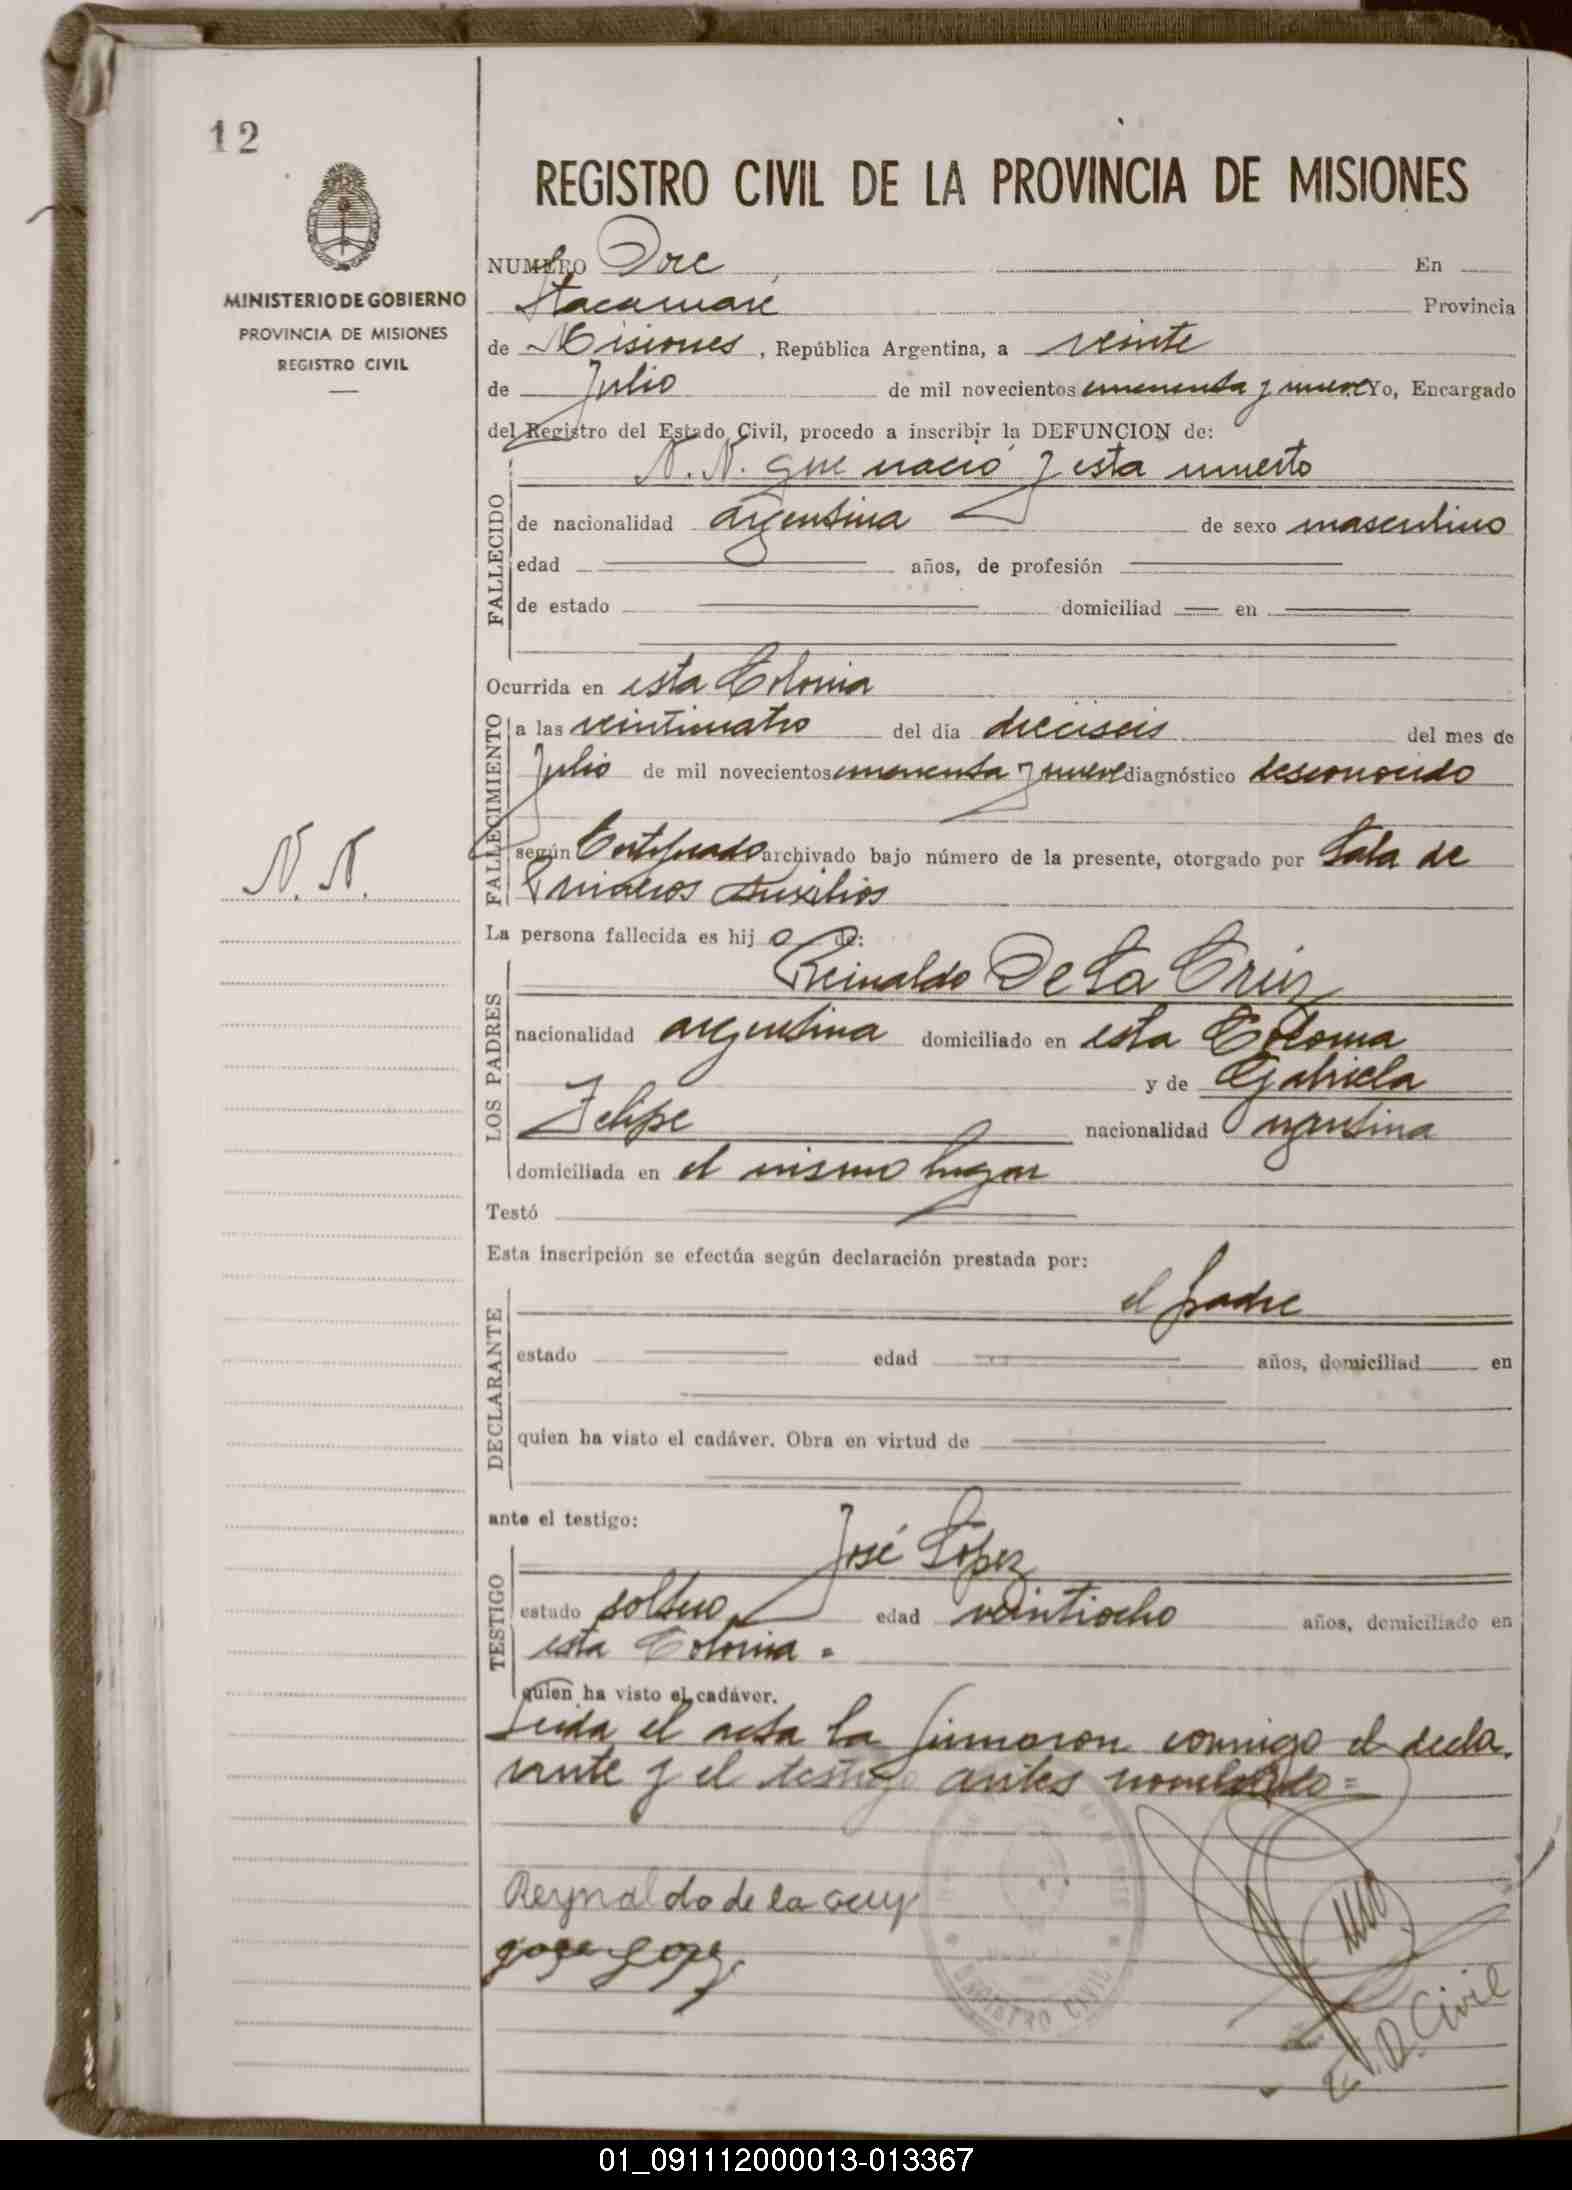 12
MINISTERIO DE GOBIERNO
PROVINCIA DE MISIONES
REGISTRO CIVIL
REGISTRO CIVIL DE LA PROVINCIA DE MISIONES
NUMERO Doce En
Itacuruaré Provincia
de Misiones, República Argentina, a veinte
de Julio de mil novecientos cincuenta y nueve Yo, Encargado
del Registro del Estado Civil, procedo a inscribir la DEFUNCION de:
N. N. que nació y esta muerto
FALLECIDO
de nacionalidad argentina de sexo masculino
edad años, de profesión
de estado domiciliad en
Ocurrida en esta Colonia
FALLECIMIENTO
a las veinticuatro del día dieciseis del mes de
Julio de mil novecientos cincuenta y nueve diagnóstico desconocido
según Certificado archivado bajo número de la presente, otorgado por Sala de
Primeros Auxilios
N. N.
La persona fallecida es hijo de:
Reinaldo De La Cruz
LOS PADRES
nacionalidad argentina domiciliado en esta Colonia
y de Gabriela
Felipe nacionalidad argentina
domiciliada en el mismo lugar
Testó
Esta inscripción se efectúa según declaración prestada por:
el padre
DECLARANTE
estado edad años, domiciliad en
quien ha visto el cadáver. Obra en virtud de
ante el testigo:
José López
TESTIGO
estado soltero edad veintiocho años, domiciliado en
esta Colonia =
quien ha visto el cadáver.
Leida el acta la firmaron conmigo el decla.
rante y el testigo antes nombrado =
Reynaldo de la cruy
REGISTRO CIVIL
E. R. Civil
01_091112000013-013367